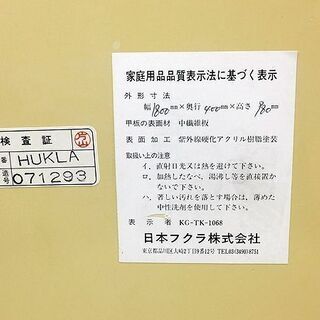 家庭用品品質表示法に基づく表示
外形寸法
幅1800mm×奥行400mm×高さ780mm
甲板の表面材 中繊維板
表面加工 紫外線硬化アクリル樹脂塗装
取扱い上の注意
イ、直射日光又は熱を避けて下さい。
ロ、加熱したなべ、湯沸し等を直接置かないで下さい。
ハ、著しい汚れを落とす場合は、薄めた中性洗剤を使用して下さい。
表示者 KG-TK-1068
日本フクラ株式会社
東京都品川区大崎2丁目9番12号 TEL03(3490)8751
検査証
番 HUKLA
造号 071293